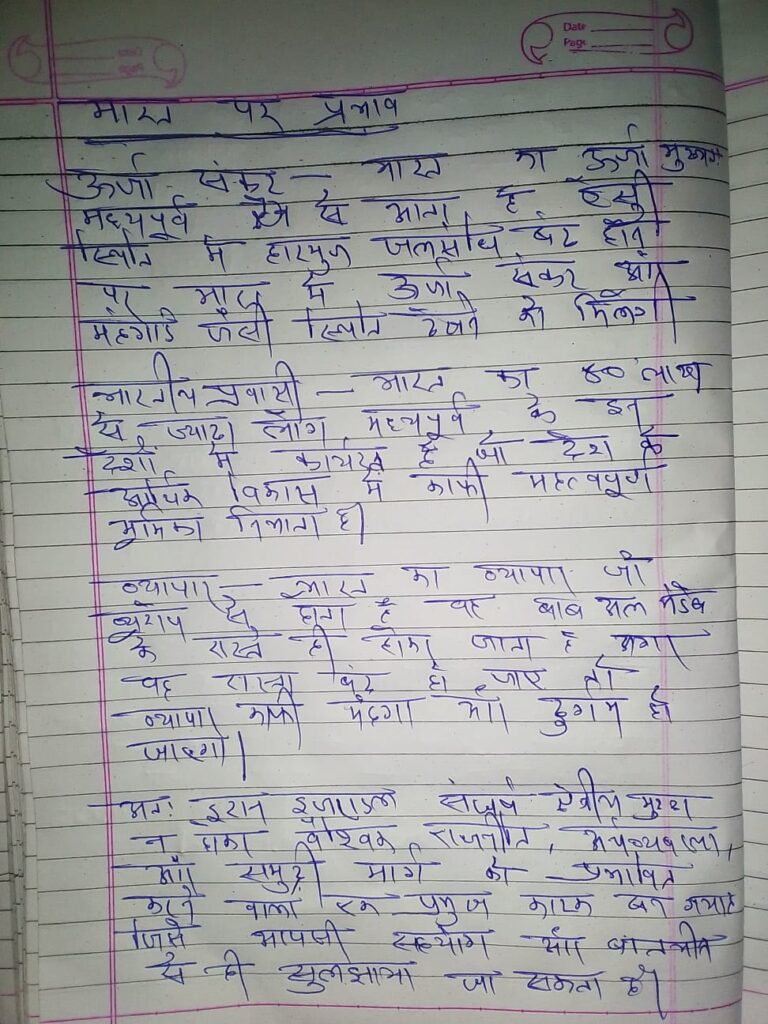 Date
Page
भारत पर प्रभाव
ऊर्जा संकट — भारत का ऊर्जा मुख्यतः
मध्यपूर्व क्षेत्र से आता है ऐसी
स्थिति में हारमुज जलसंधि बंद होने
पर भारत में ऊर्जा संकट और
महंगाई जैसी स्थिति देखने को मिलेगी
भारतीय प्रवासी — भारत का 80 लाख
से ज्यादा लोग मध्यपूर्व के इन
देशों में कार्यरत है जो देश के
आर्थिक विकास में काफी महत्वपूर्ण
भूमिका निभाता है।
व्यापार — भारत का व्यापार जो
यूरोप से होता है वह बाब अल मंडेब
के रास्ते ही होकर जाता है अगर
वह रास्ता बंद हो जाए तो
व्यापार काफी मंहगा और दुर्गम हो
जाएगा।
अतः इरान इजराइल संघर्ष क्षेत्रीय मुद्दा
न होकर वैश्विक राजनीति, अर्थव्यवस्था,
और समुद्री मार्ग को प्रभावित
करने वाला एक प्रमुख कारक बन गया है
जिसे आपसी सहयोग और बातचीत
से ही सुलझाया जा सकता है।